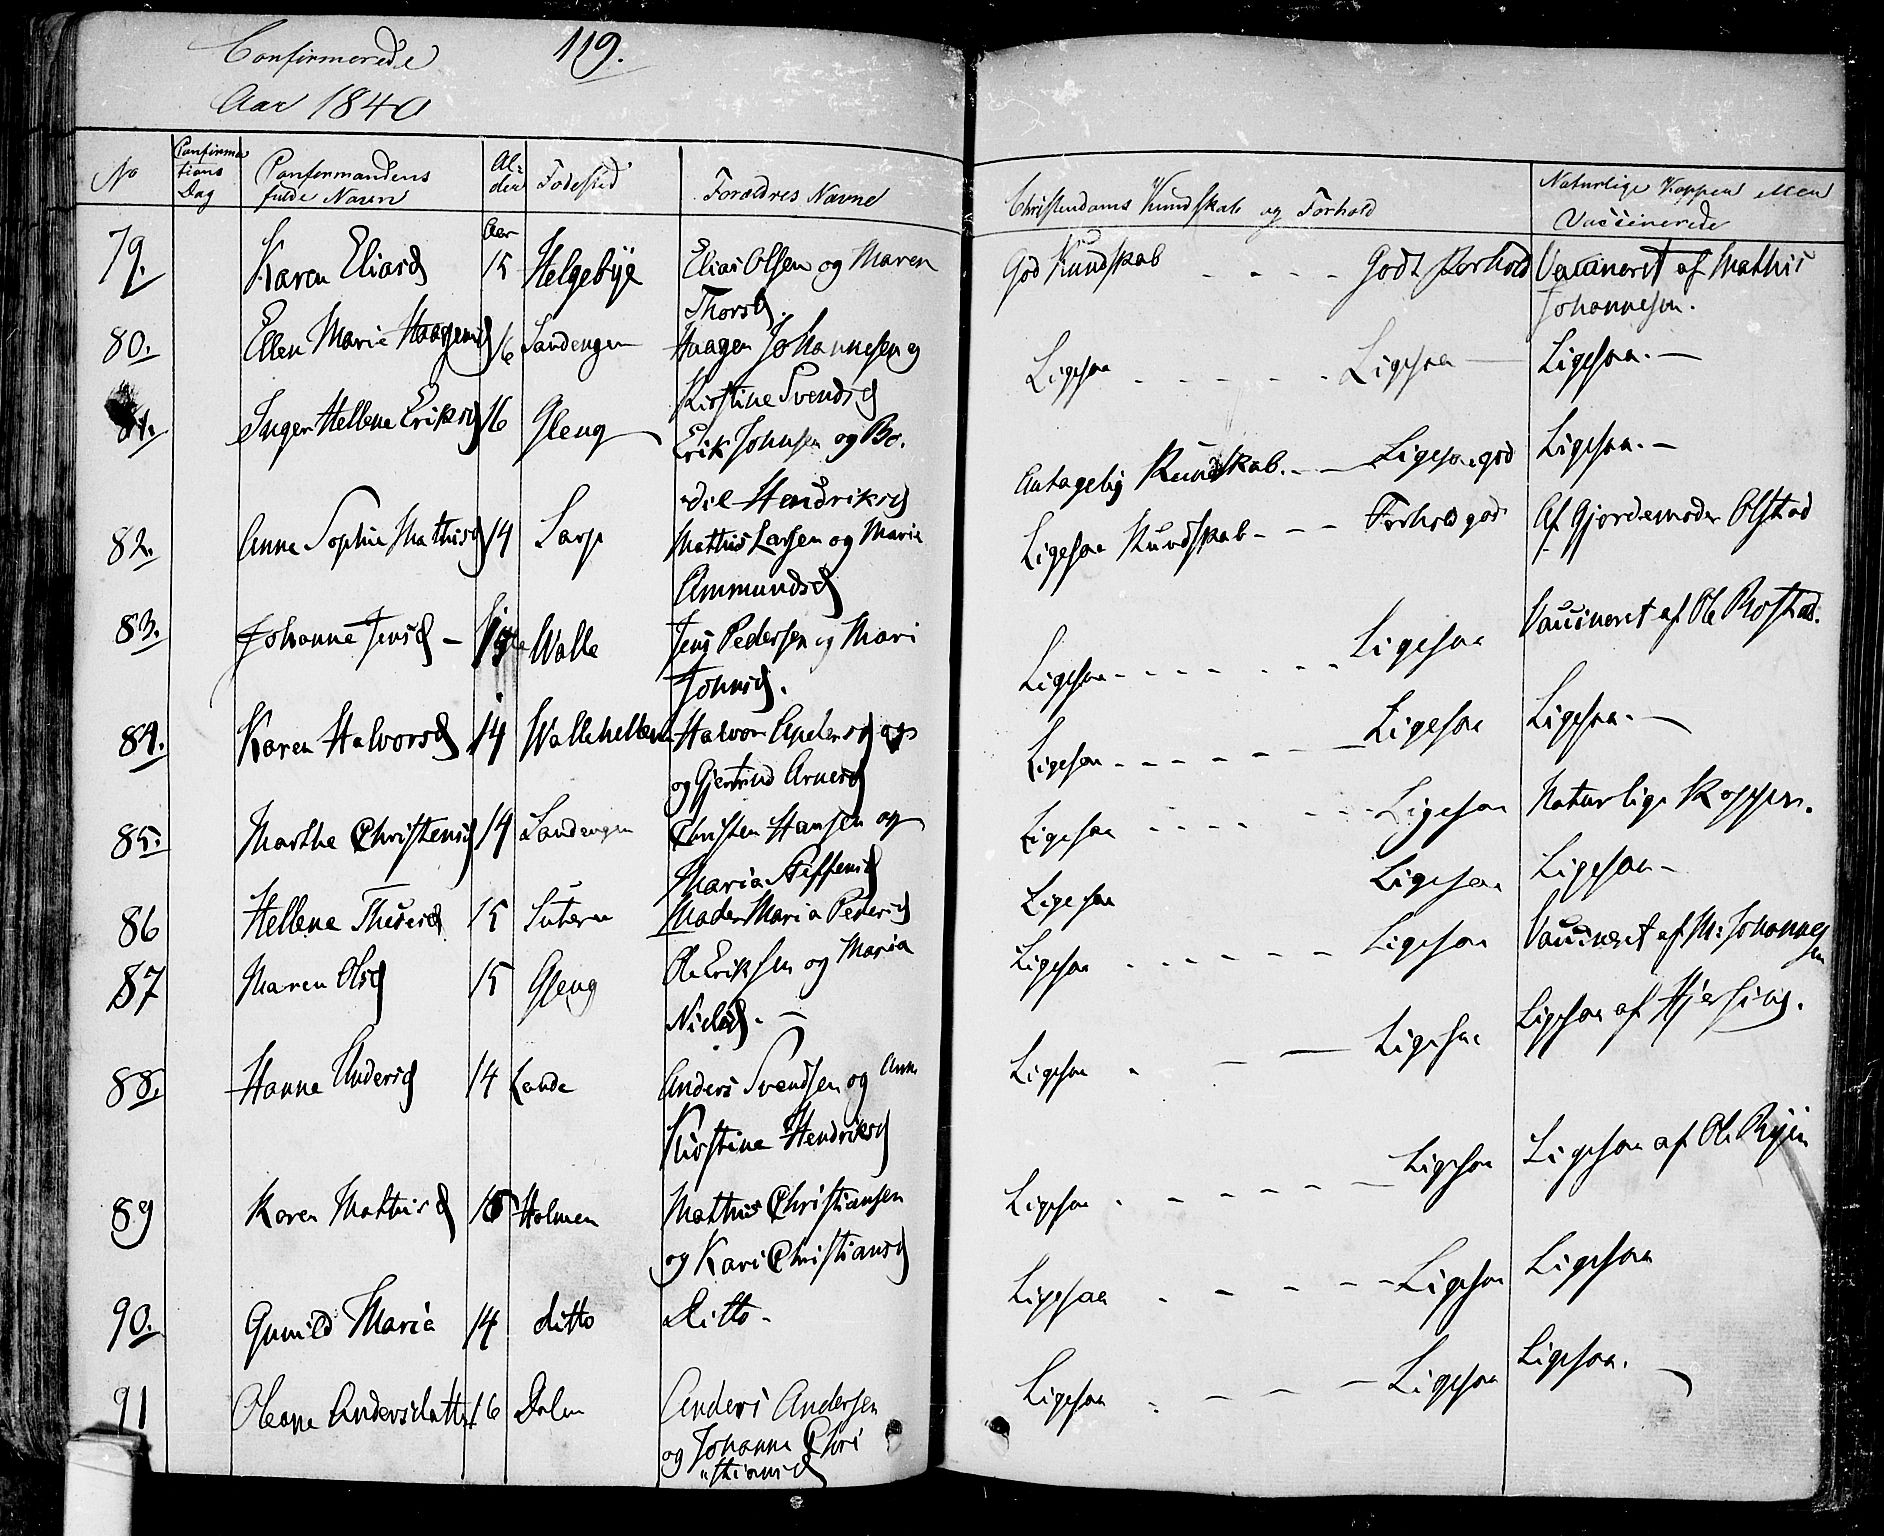 Confirmerede 119.
Aar 1840
No Confirma Confirmandens Al- Fødested Forældres Navne Christendoms Kundskab og Forhold Naturlige Kopper eller
tions fulde Navn der Vaccinerede
Dag
Aar
79. Karen Eliasd 15 Helgebye Elias Olsen og Maren God Kundskab - - - - Godt Forhold Vaccineret af Mathis
Thorsd. Johannesen.
80. Ellen Marie Haagensd 16 Sandengen Haagen Johannesen og Ligesaa - - - - - Ligesaa — Ligesaa. —
Kirstine Svendsd
81. Inger Hellene Eriksd 16 Gleng Erik Johnsen og Bo. Antagelig Kundskab. - — Ligesaa god Ligesaa. —
dil Hendriksd
82. Anne Sophie Mathisd 14 Sarp Mathis Larsen og Maria Ligesaa Kundskab - - - Forhold god Af Gjordemoder Olstad
Ammundsd
83. Johanne Jensd — Walle Jens Pedersen og Mari Ligesaa - - - - - - - Ligesaa Vaccineret af Ole Rostad.
Johnsd.
84. Karen Halvorsd 14 Wallehellen Halvor Andersen og
og Gjertrud Arnesd Ligesaa - - - - - - Ligesaa Ligesaa. —
85. Marthe Christensd 14 Sandengen Christen Hansen og Ligesaa - - - - - - Ligesaa Naturlige Kopper.
Maria Steffensd
86 Hellene Theresd 15 Moder Maria Pedersd Ligesaa Ligesaa Ligesaa —
87 Maren Olsd 15 Gleng Ole Eriksen og Maria Ligesaa - - - - - - Ligesaa Vaccineret af M: Johannes
Nielsd. — sen
88. Hanne Andersd 14 Lande Anders Svendsen og Anne Ligesaa - - — Ligesaa Ligesaa af Hjersing.
Kirstine Hendriksd
89 Karen Mathisd 15 Holmen Mathis Christiansen Ligesaa - - - - - — Ligesaa Ligesaa af Ole
og Kari Christiansd
90. Gunild Maria 14 ditto Ditto - Ligesaa - - - - - Ligesaa Ligesaa
91 Oleane Andersdatter 16 Dalen Anders Andersen Ligesaa - - - — Ligesaa Ligesaa. —
og Johanne Chri
"stiansd